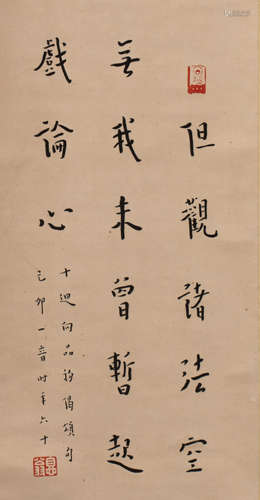 但觀諸法空
無我未曾暫起
戲論心
十迴向品初偈頌句
己卯一音时年六十